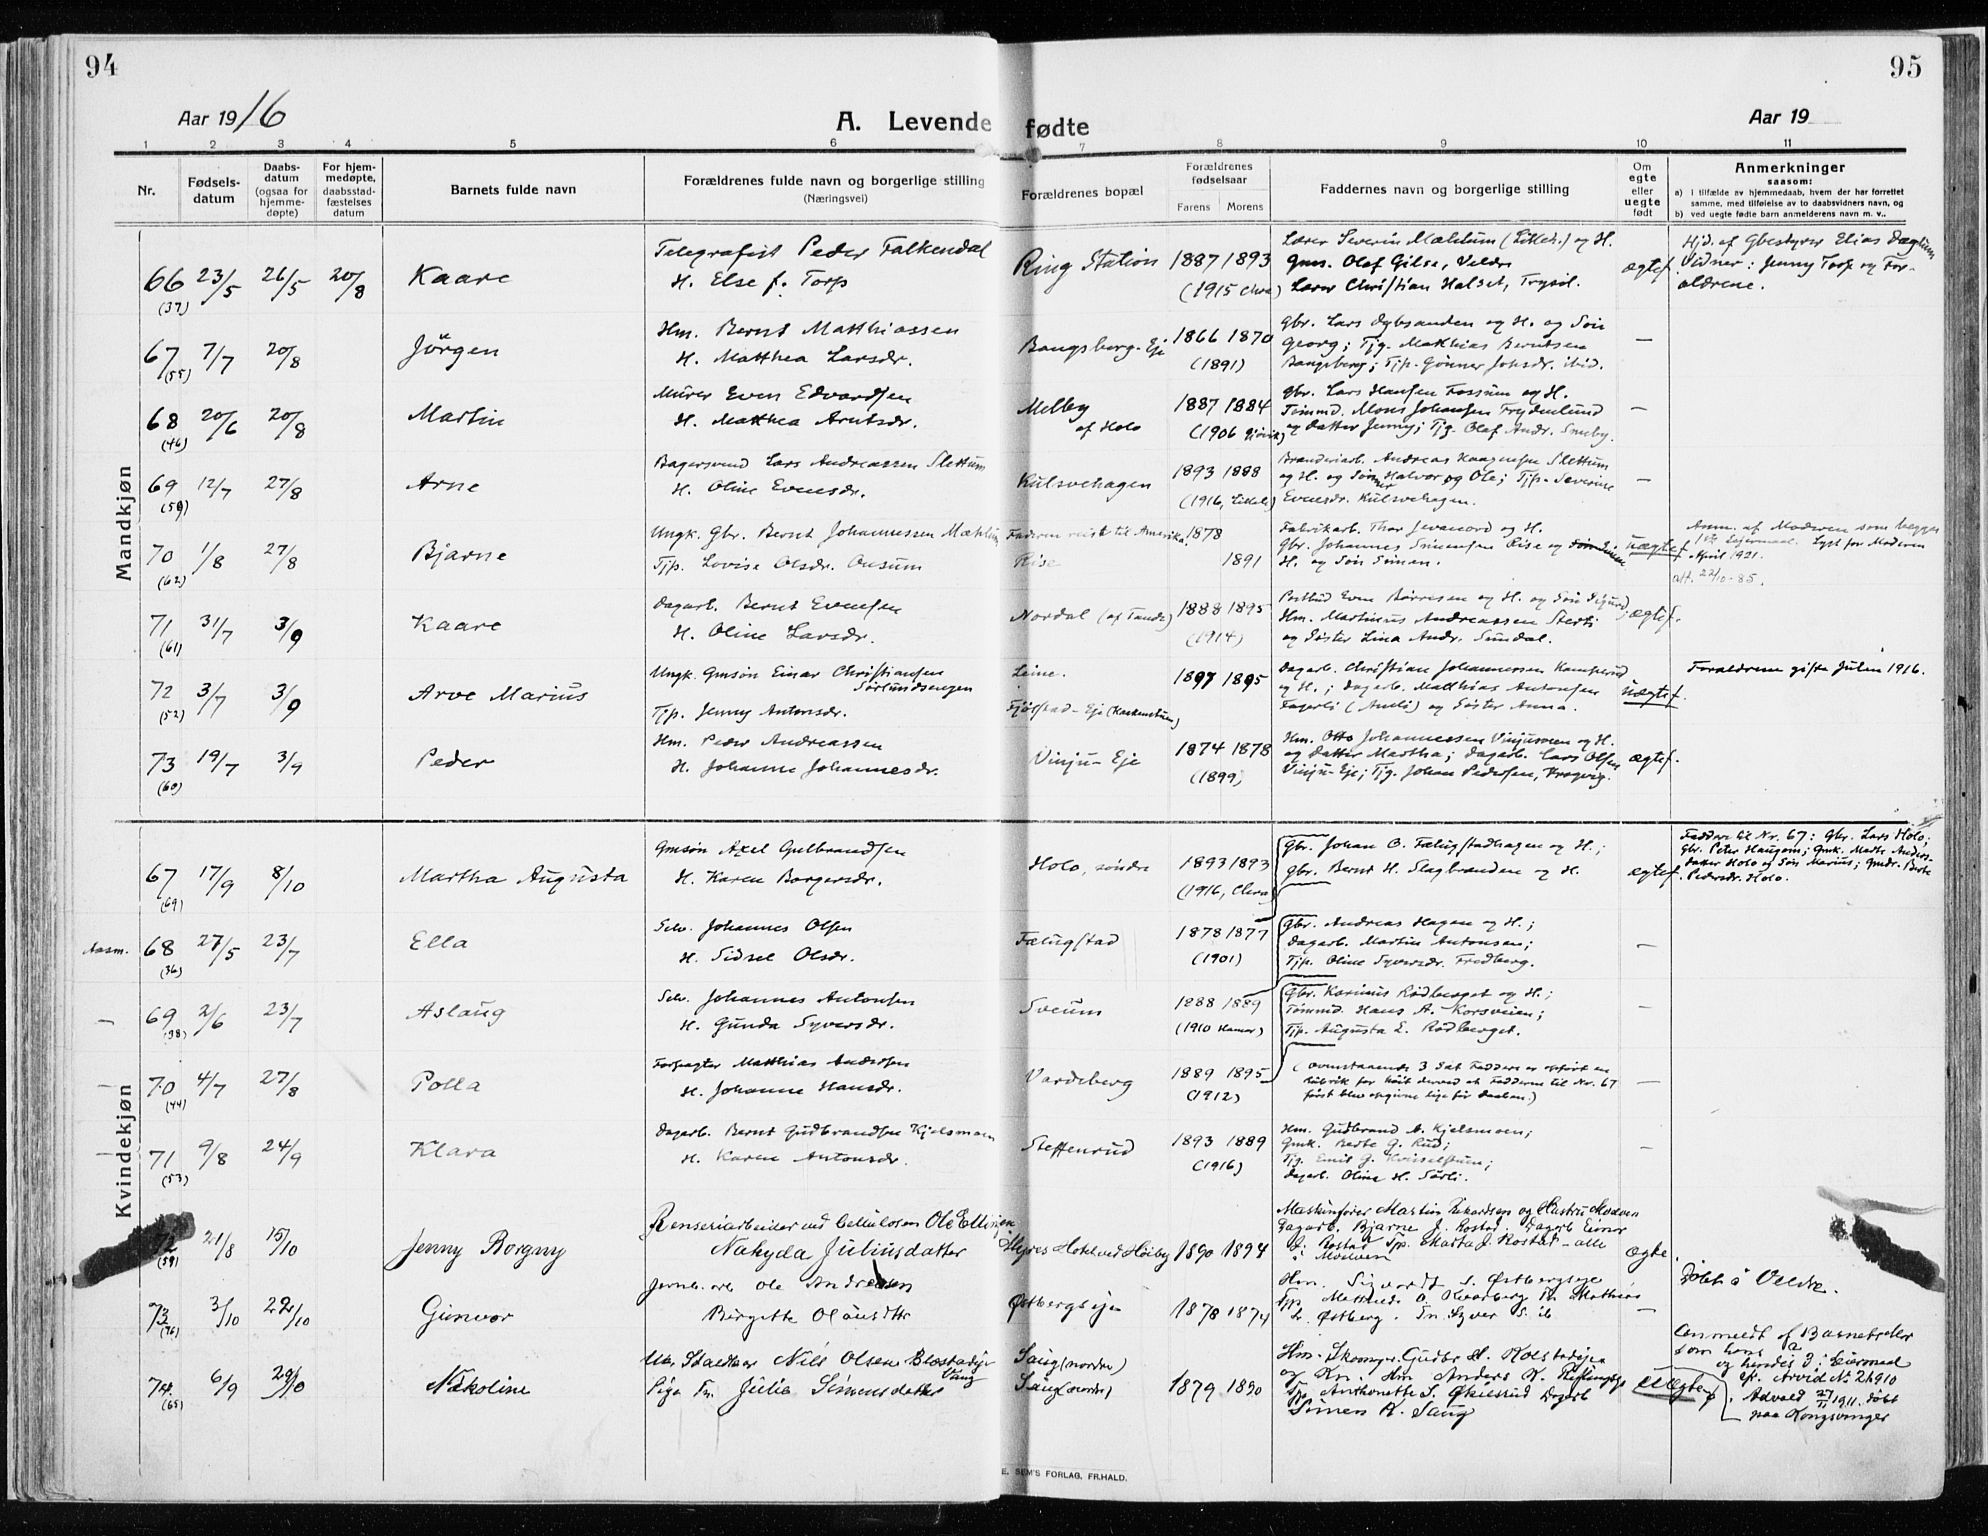 94
95
Aar 1916
A. Levende fødte
Aar 19
1 2 3 4 5 6 7 8 9 10 11
Nr.
Fødsels-
datum
Daabs-
datum
(ogsaa for
hjemme-
døpte)
For hjem-
medøpte,
daabsstad-
fæstelses
datum
Barnets fulde navn
Forældrenes fulde navn og borgerlige stilling
(Næringsvei)
Forældrenes bopæl
Forældrenes
fødselsaar
Farens Morens
Faddernes navn og borgerlige stilling
Om
egte
eller
uegte
født
Anmerkninger
saasom:
a) I tilfælde av hjemmedaab, hvem der har forrettet
samme, med tilføielse av to daabsvidners navn, og
b) ved uegte fødte barn anmelderens navn m. v..
Mandkjøn
66 23/5 26/5 20/8 Kaare
(37)
Telegrafist Peder Falkendal
H. Else f. Torp
Ring Station 1887 1893
(1915 Chra)
Lærer Severin Mæhlum (Lilleh.) og H.
Gms. Olaf Gilse, Veldre
Lærer Christian Halset, Trysil.
ægtef.
Hjd. af Gbestyrer Elias Dæhlum
Vidner: Jenny Torp og For-
ældrene.
67 7/7 20/8 Jörgen
(55)
Hm. Bernt Matthiassen
H. Matthea Larsdr.
Bangsberg-Eje 1866 1870
(1891)
Gbr. Lars Dybsanden og H. og Søn
Georg; Tjg. Matthias Berntsen
Bangsberg; Tjp. Gunner Johsdr. ibid.
—
68 20/6 20/8 Martin
(46)
Murer Even Edvardsen
H. Matthea Arntsdr.
Melby
af Holo
1887 1884
(1906 Gjøvik)
Gbr. Lars Hansen Fossum og H.
Tømmd. Mons Johansen Frydenlund
og Datter Jenny; Tjg. Olaf Andr. Smeby.
—
69 12/7 27/8 Arne
(50)
Bagersvend Lars Andreassen Slettum
H. Oline Evensdr.
Kulsvehagen 1893 1888
(1916, Lilleh)
Brænderiarb. Andreas Haagensen Slettum
og H. og Sønner Halvor og Ole; Tjp. Severine
Evensdr. Kulsvehagen.
—
70 1/8 27/8 Bjarne
(62)
Ungk. Gbr. Bernt Johannessen Mæhlum
Tjp. Lovise Olsdr. Onsum
Faderen reist til Amerika. 1878
Rise 1891
Fabrikarb. Thor Jevanord og H.
Gbr. Johannes Simensen Rise og
H. og Søn Simen.
uægtef.
Anm. af Moderen som begges
1ste Leiermaal. Lyst for Moderen
April 1921.
att. 22/10-85.
71 31/7 3/9 Kaare
(61)
Dagarb. Bernt Evensen
H. Oline Larsdr.
Nordal (af Tande) 1888 1895
(1914)
Postbud Even Børresen og H. og Søn Sigurd;
Hm. Martinus Andreassen Sterli
og Søster Lina Andr. Sundal.
ægtef.
72 3/7 3/9 Arve Marius
(52)
Ungk. Gmsøn Einar Christiansen
Sørlundsengen
Tjp. Jenny Antonsdr.
Leine.
Fjølstad-Eje
1897 1895
Dagarb. Christian Johannessen Kamperud
og H.; Dagarb. Matthias Antonsen
Fagerli (Amli) og Søster Anna.
uægtef.
Forældrene gifta Julin 1916.
73 19/7 3/9 Peder
(60)
Hm. Peder Andreassen
H. Johanne Johannesdr.
Vinju-Eje 1874 1878
(1899)
Hm. Otto Johannessen Vinjumoen og H.
og Datter Martha; Dagarb. Lars Olsen
Vinju-Eje; Tjg. Johan Pedersen, Krogvig.
ægtef.
Kvindekjøn
67 17/9 8/10 Martha Augusta
(69)
Gmsøn Axel Gulbrandsen
H. Karen Borgersdr.
Holo, søndre 1893 1893
(1916, Chra)
Gbr. Johan O. Fælugstadhagen og H.;
Gbr. Bernt H. Slagbrenden og H.
ægtef.
Faddere til Nr. 67: Gbr. Lars Holo;
Gbr. Peter Haugom; Gmk. Marthe Anders-
datter Holo og Søn Marius; Gmdr. Berthe
Pedersdr. Holo.
Aasm. 68 27/5 23/7 Ella
(36)
Selv. Johannes Olsen
H. Sidsel Olsdr.
Fælugstad 1878 1877
(1901)
Gbr. Andreas Hagen og H.;
Dagarb. Martin Antonsen;
Tjp. Oline Syversdr. Fredberg.
—
— 69 2/6 23/7 Aslaug
(38)
Selv. Johannes Antonsen
H. Gunda Syversdr.
Sveum 1888 1889
(1910 Hamar)
Gbr. Karinius Rødberget og H.;
Tømmd. Hans A. Korsveien;
Tjp. Augusta E. Rødberget.
—
— 70 4/7 27/8 Polla
(44)
Forpagter Matthias Andersen
H. Johanne Hansdr.
Vardeberg 1889 1895
(1912)
(Ovenstaaende 3 Sæt Faddere er opført en
Rubrik for høit derved at Fadderne til Nr. 67
først blev opgivne lige før Daaben.)
—
— 71 9/8 24/9 Klara
(53)
Dagarb. Bernt Gudbrandsen Kjelsmoen
H. Karen Antonsdr.
Steffenrud 1893 1889
(1916)
Hm. Gudbrand A. Kjelsmoen;
Gmk. Berte G. Rud;
Tjg. Emil G.
Dagarb. Oline H. Sørli.
—
72 21/8 15/10 Jenny Borgny
(59)
Renseriarbeider ved Cellulosen Ole Ellingsen
Nakyda Juliusdatter
Hotel ved Høiby 1890 1894
Maskinfører Martin Rikardsen og Hustru Moelven
Dagarb. Bjarne J. Rostad. Dagarb Einar
J. Rostad Tjp. Marta J. Rostad — alle
i Moelven
ægte.
73 3/10 22/10 Gunvor
(76)
Jernb. arb Ole Andresen
Birgitte Olausdtr
Østbergseje 1878 1874
Hm. Sigvardt S. Østbergseje
Tjp. Mathilde O. Kvarberg Tn Mathias
L. Østberg. Tn. Syver S. ib
—
Døbt i Veldre.
74 6/9 29/10 Nikoline
(65)
Nils Olsen Blæstadeje
Vang
Pige Tn. Julie Simensdatter
Saug (nordre)
Saug (nordre) 1879 1890
Hm. Skomager Gudbr H. Kolstadejen
og Kn. Hm Anders K. Heflingeje
Tjp Anthonette S. Økelsrud Dagarb
Simen K. Saug
Uægte
Anmeldt af Barnefader
som hans 2
og hendes 3. Leiermaal
cfr. Arvid No 2 1910
Advald 27/11 1911. døbt
paa Kongsvinger
E. SEM'S FORLAG, FR.HALD.